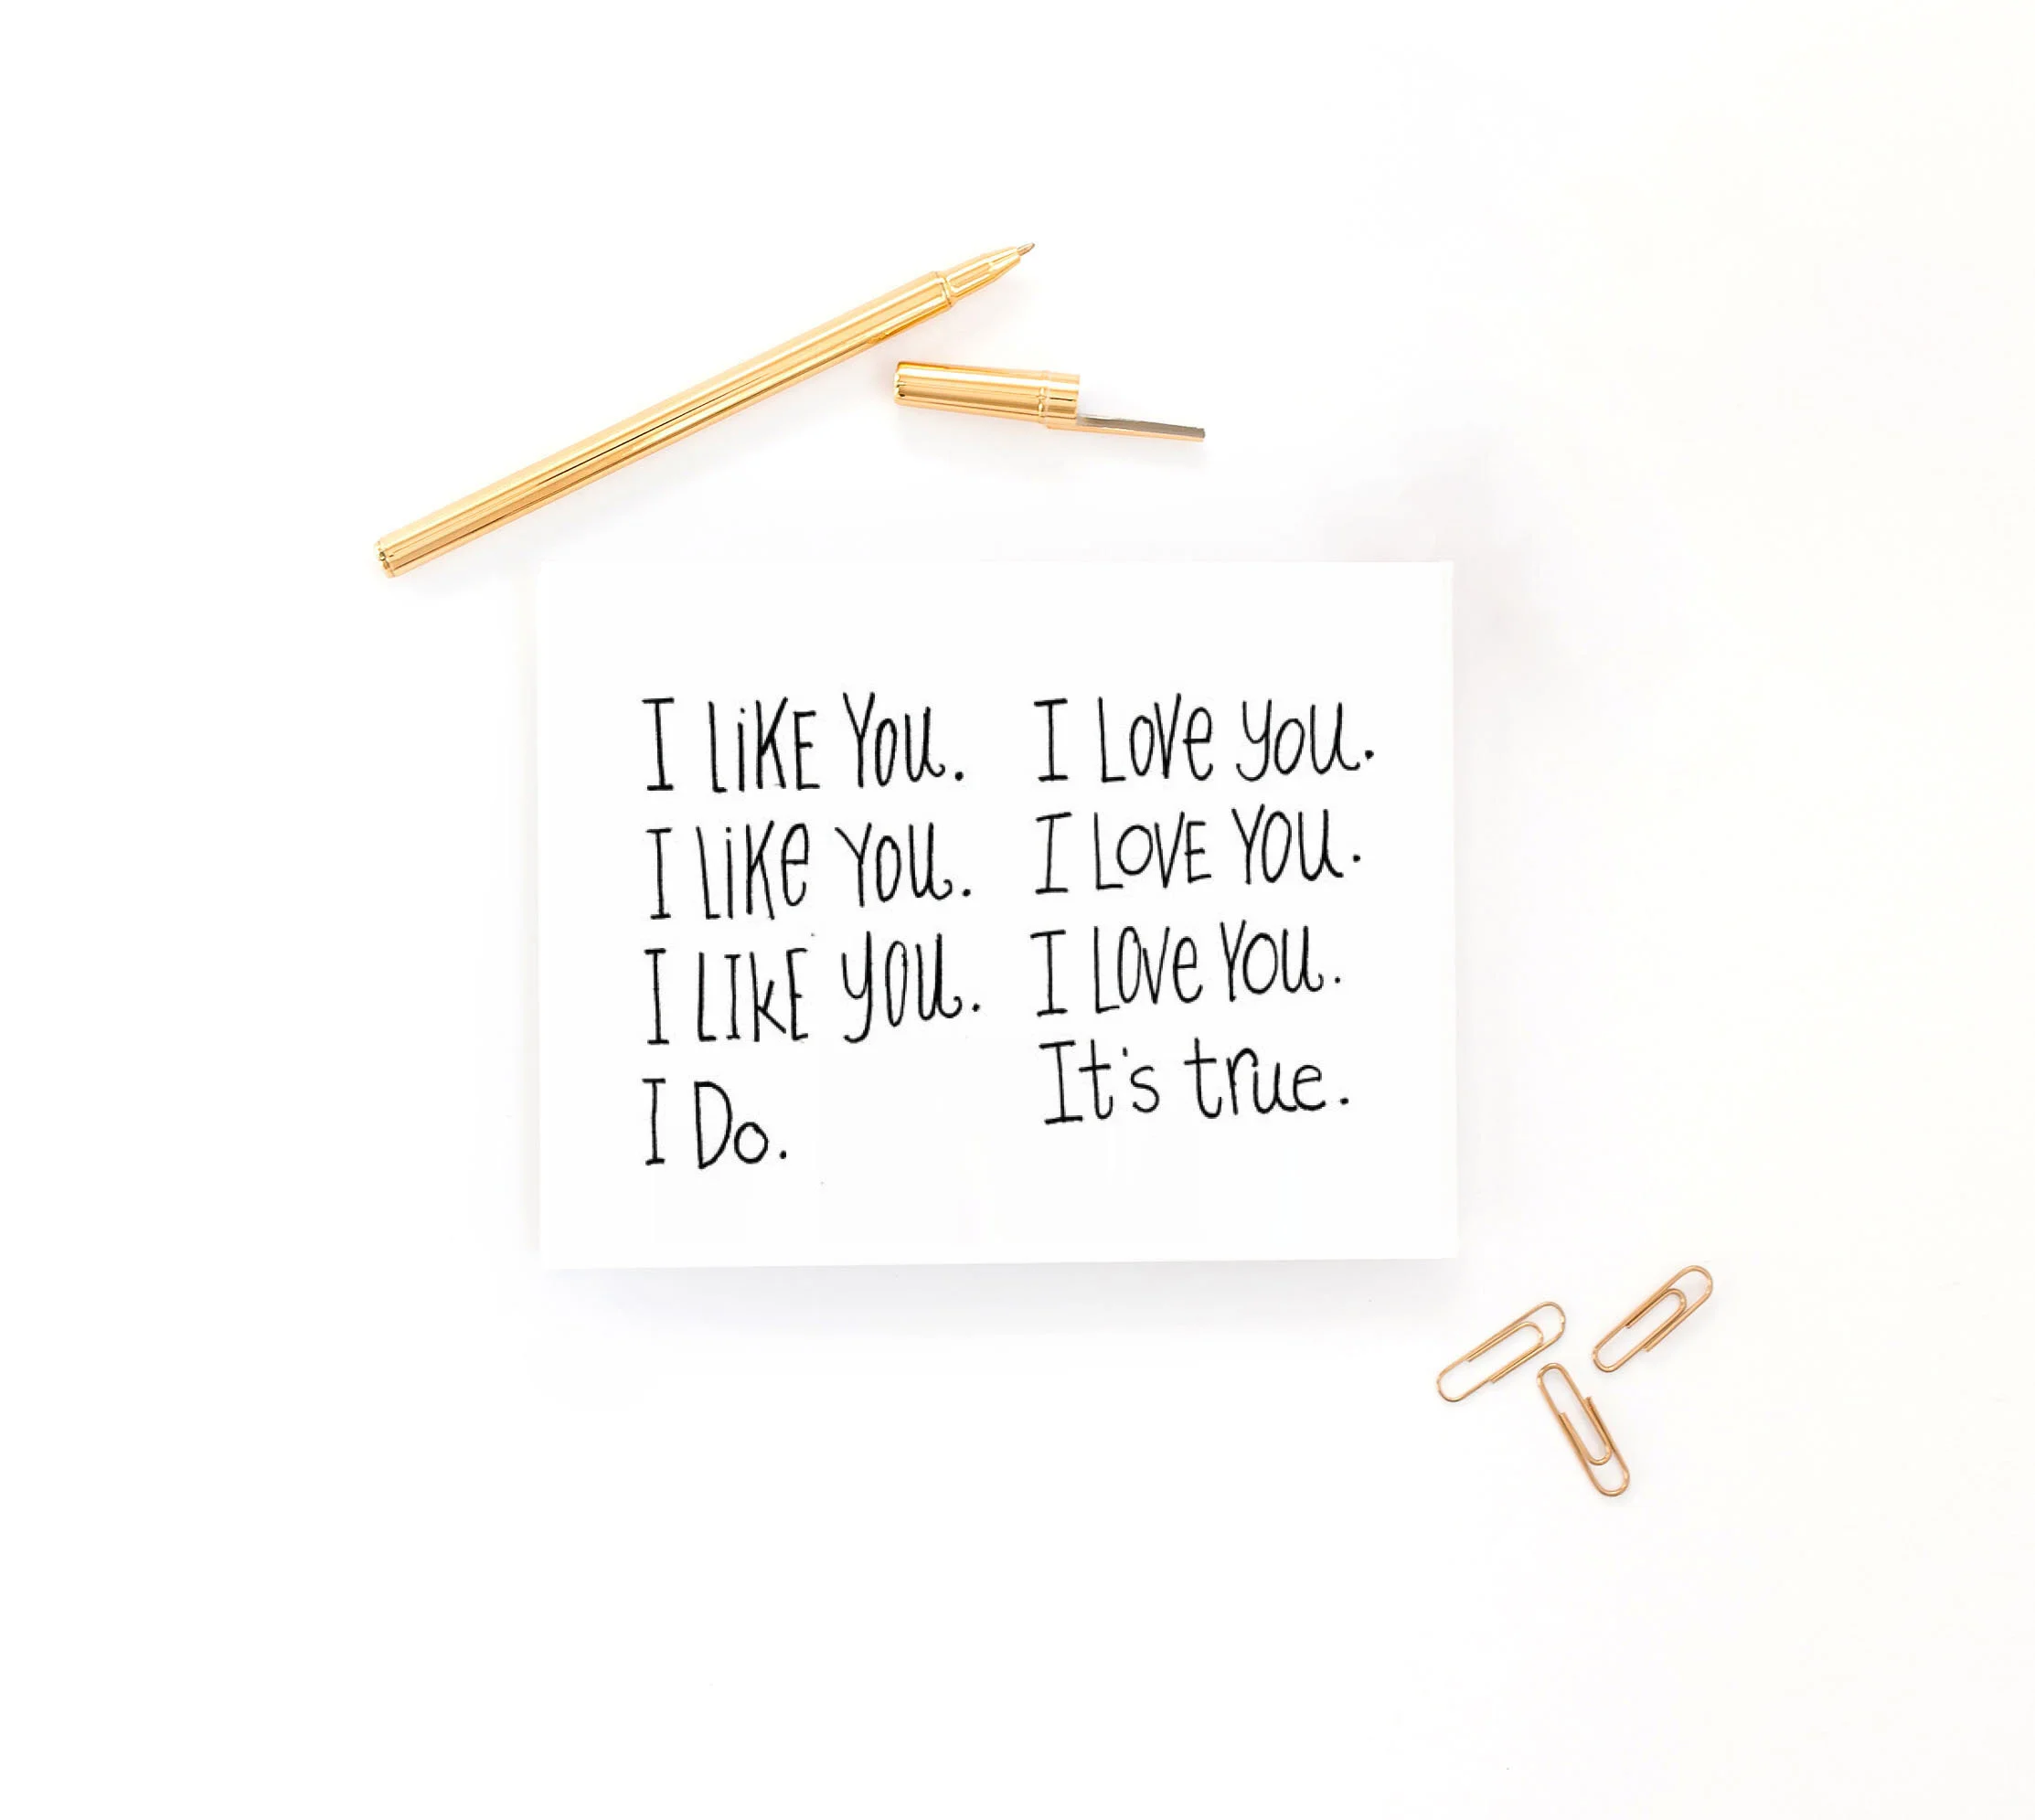 I LiKE You.
I LiKe You.
I LIkE you.
I Do.
I Love you.
I LOVE YOU.
I LOVe You.
It's true.